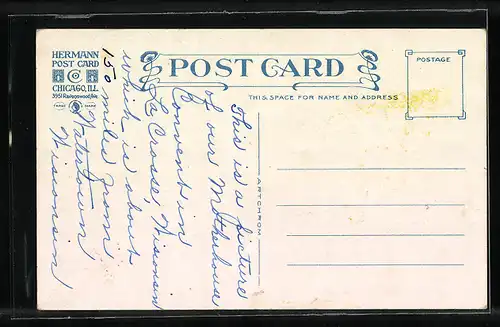 HERMANN
POST CARD
CO
CHICAGO, ILL.
3951 Ravenswood Av.
TRADE MARK
POST CARD
THIS SPACE FOR NAME AND ADDRESS
POSTAGE
ARTCHROM
This is a picture
of our Motherhouse
Convent in
La Crosse, Wisconsin
which is about
150 miles from
Watertown
Wisconsin